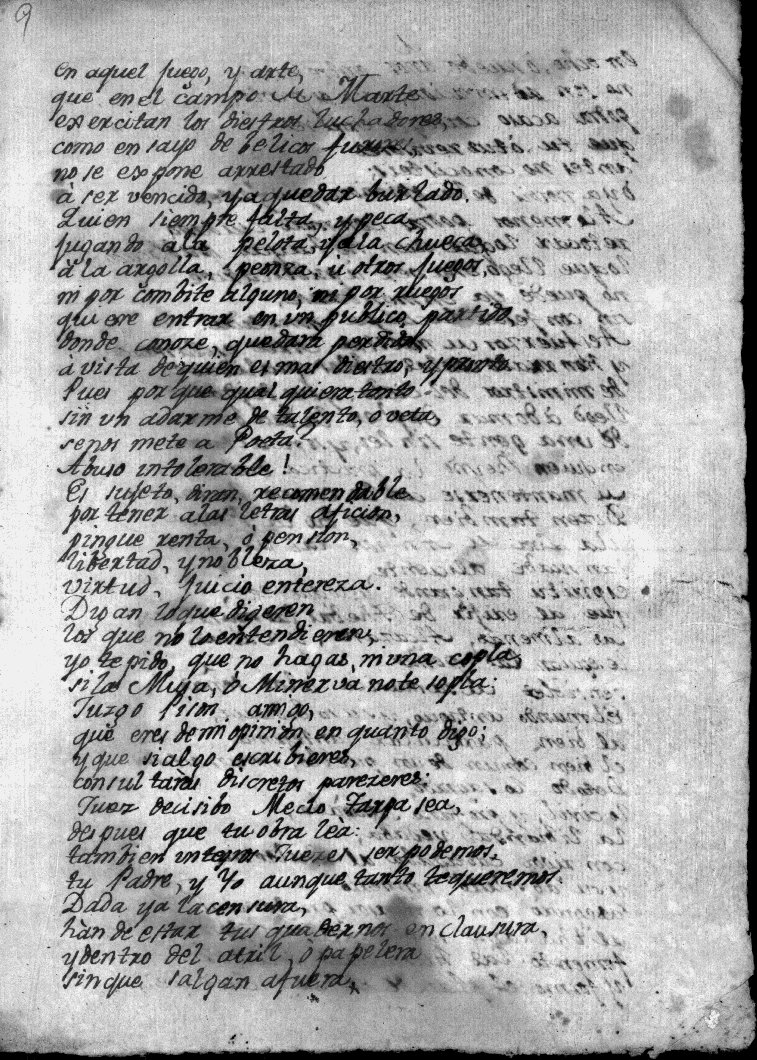 9
en aquel juego, y arte,
que en el campo de Marte
exercitan los diestros luchadores,
como ensayo de belicos furores
no se expone arrestado
à ser vencido, ya quedar burlado.
Quien siempre falta, y peca,
jugando ala pelota, y ala chueca,
à la argolla, peonza, ù otros juegos,
ni por combite alguno, ni por ruegos
quiere entrar en un publico partido,
donde conoze quedarà perdido,
à vista dequien es mas diestro, y
Pues porque qualquiera tonto
sin un adarme de talento, ò veta,
senos mete a Poeta?
Abuso intolerable!
Es sujeto, diran, recomendable
por tener alas letras aficion,
pingue renta, ò pension,
libertad, y nobleza,
virtud, juicio entereza.
Digan loque digeren
los que no lo entendieren,
yo te pido, que no hagas, ni una copla,
sila Musa, ò Minerva note sopla:
Juzgo Pison amigo,
que eres demi opinion en quanto digo;
y que sialgo escribieres,
consultaras discretos parezeres:
Juez decisibo Mecio Tarpa sea,
despues que tu obra lèa:
tambien integros Juezes ser podemos,
tu Padre, y Yo aunque tanto te queremos.
Dada ya lacensura,
hàn de estar tus quadernos en clausura,
y dentro del atril, ò papelera
sinque salgan afuera,